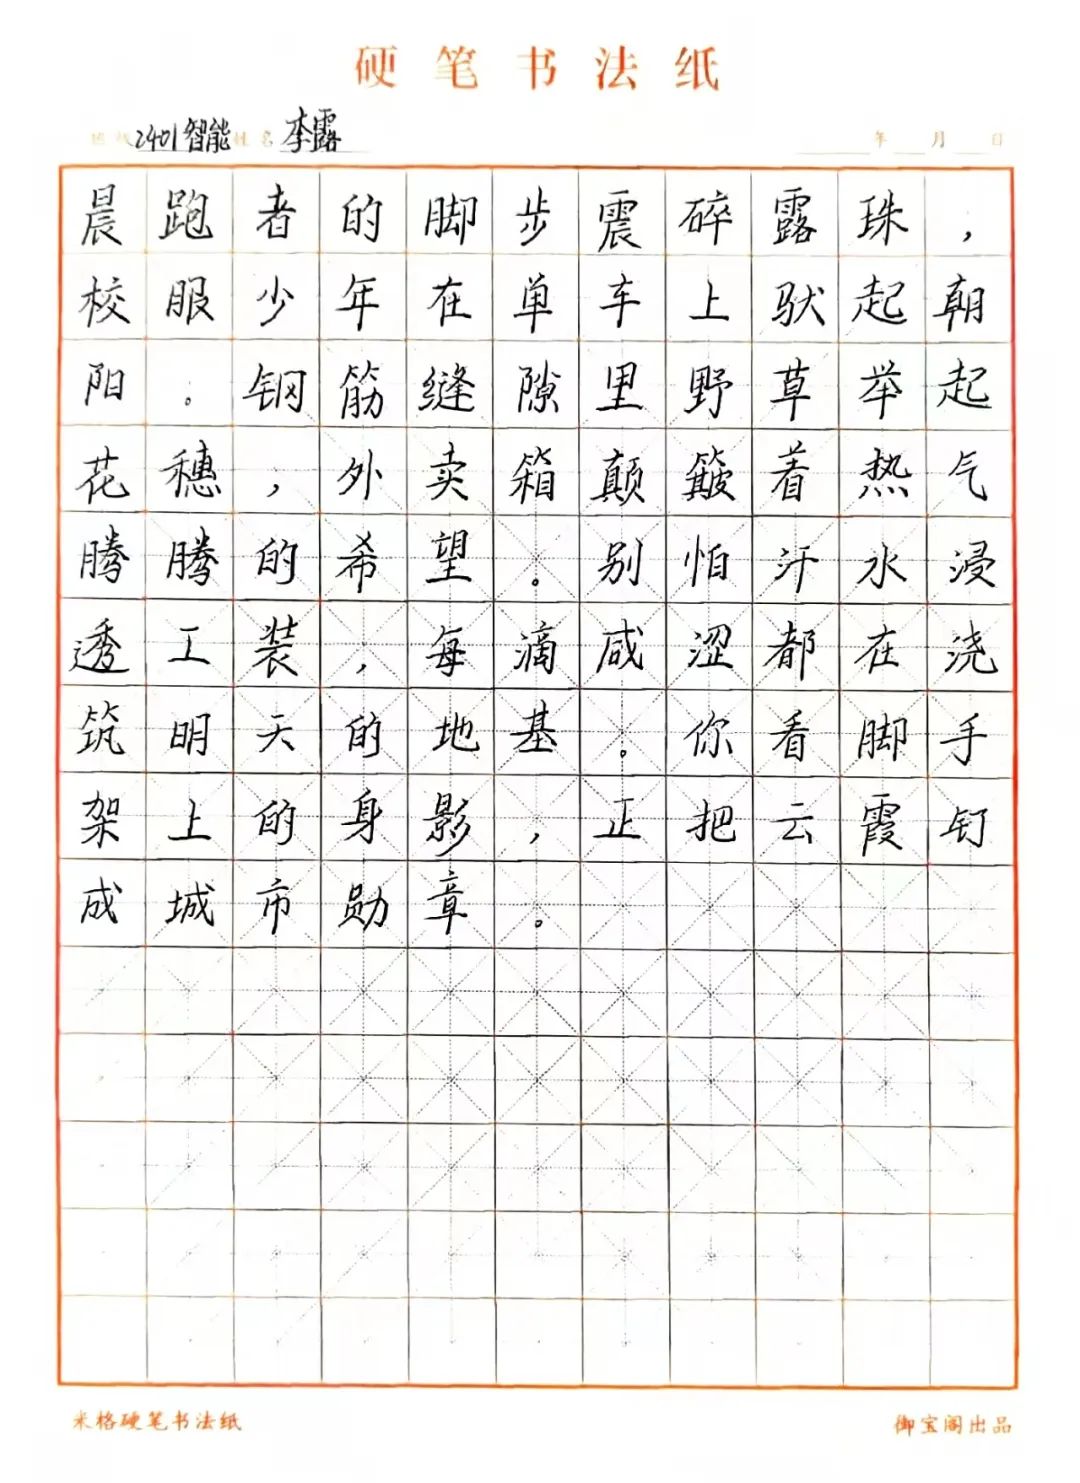 硬笔书法纸
班级 2401智能 姓名 李露 年 月 日
晨跑者的脚步震碎露珠，
校服少年在单车上驮起朝
阳。钢筋缝隙里野草举起
花穗，外卖箱颠簸着热气
腾腾的希望。别怕汗水浸
透工装，每滴咸涩都在浇
筑明天的地基。你看脚手
架上的身影，正把云霞钉
成城市勋章。
米格硬笔书法纸 御宝阁出品